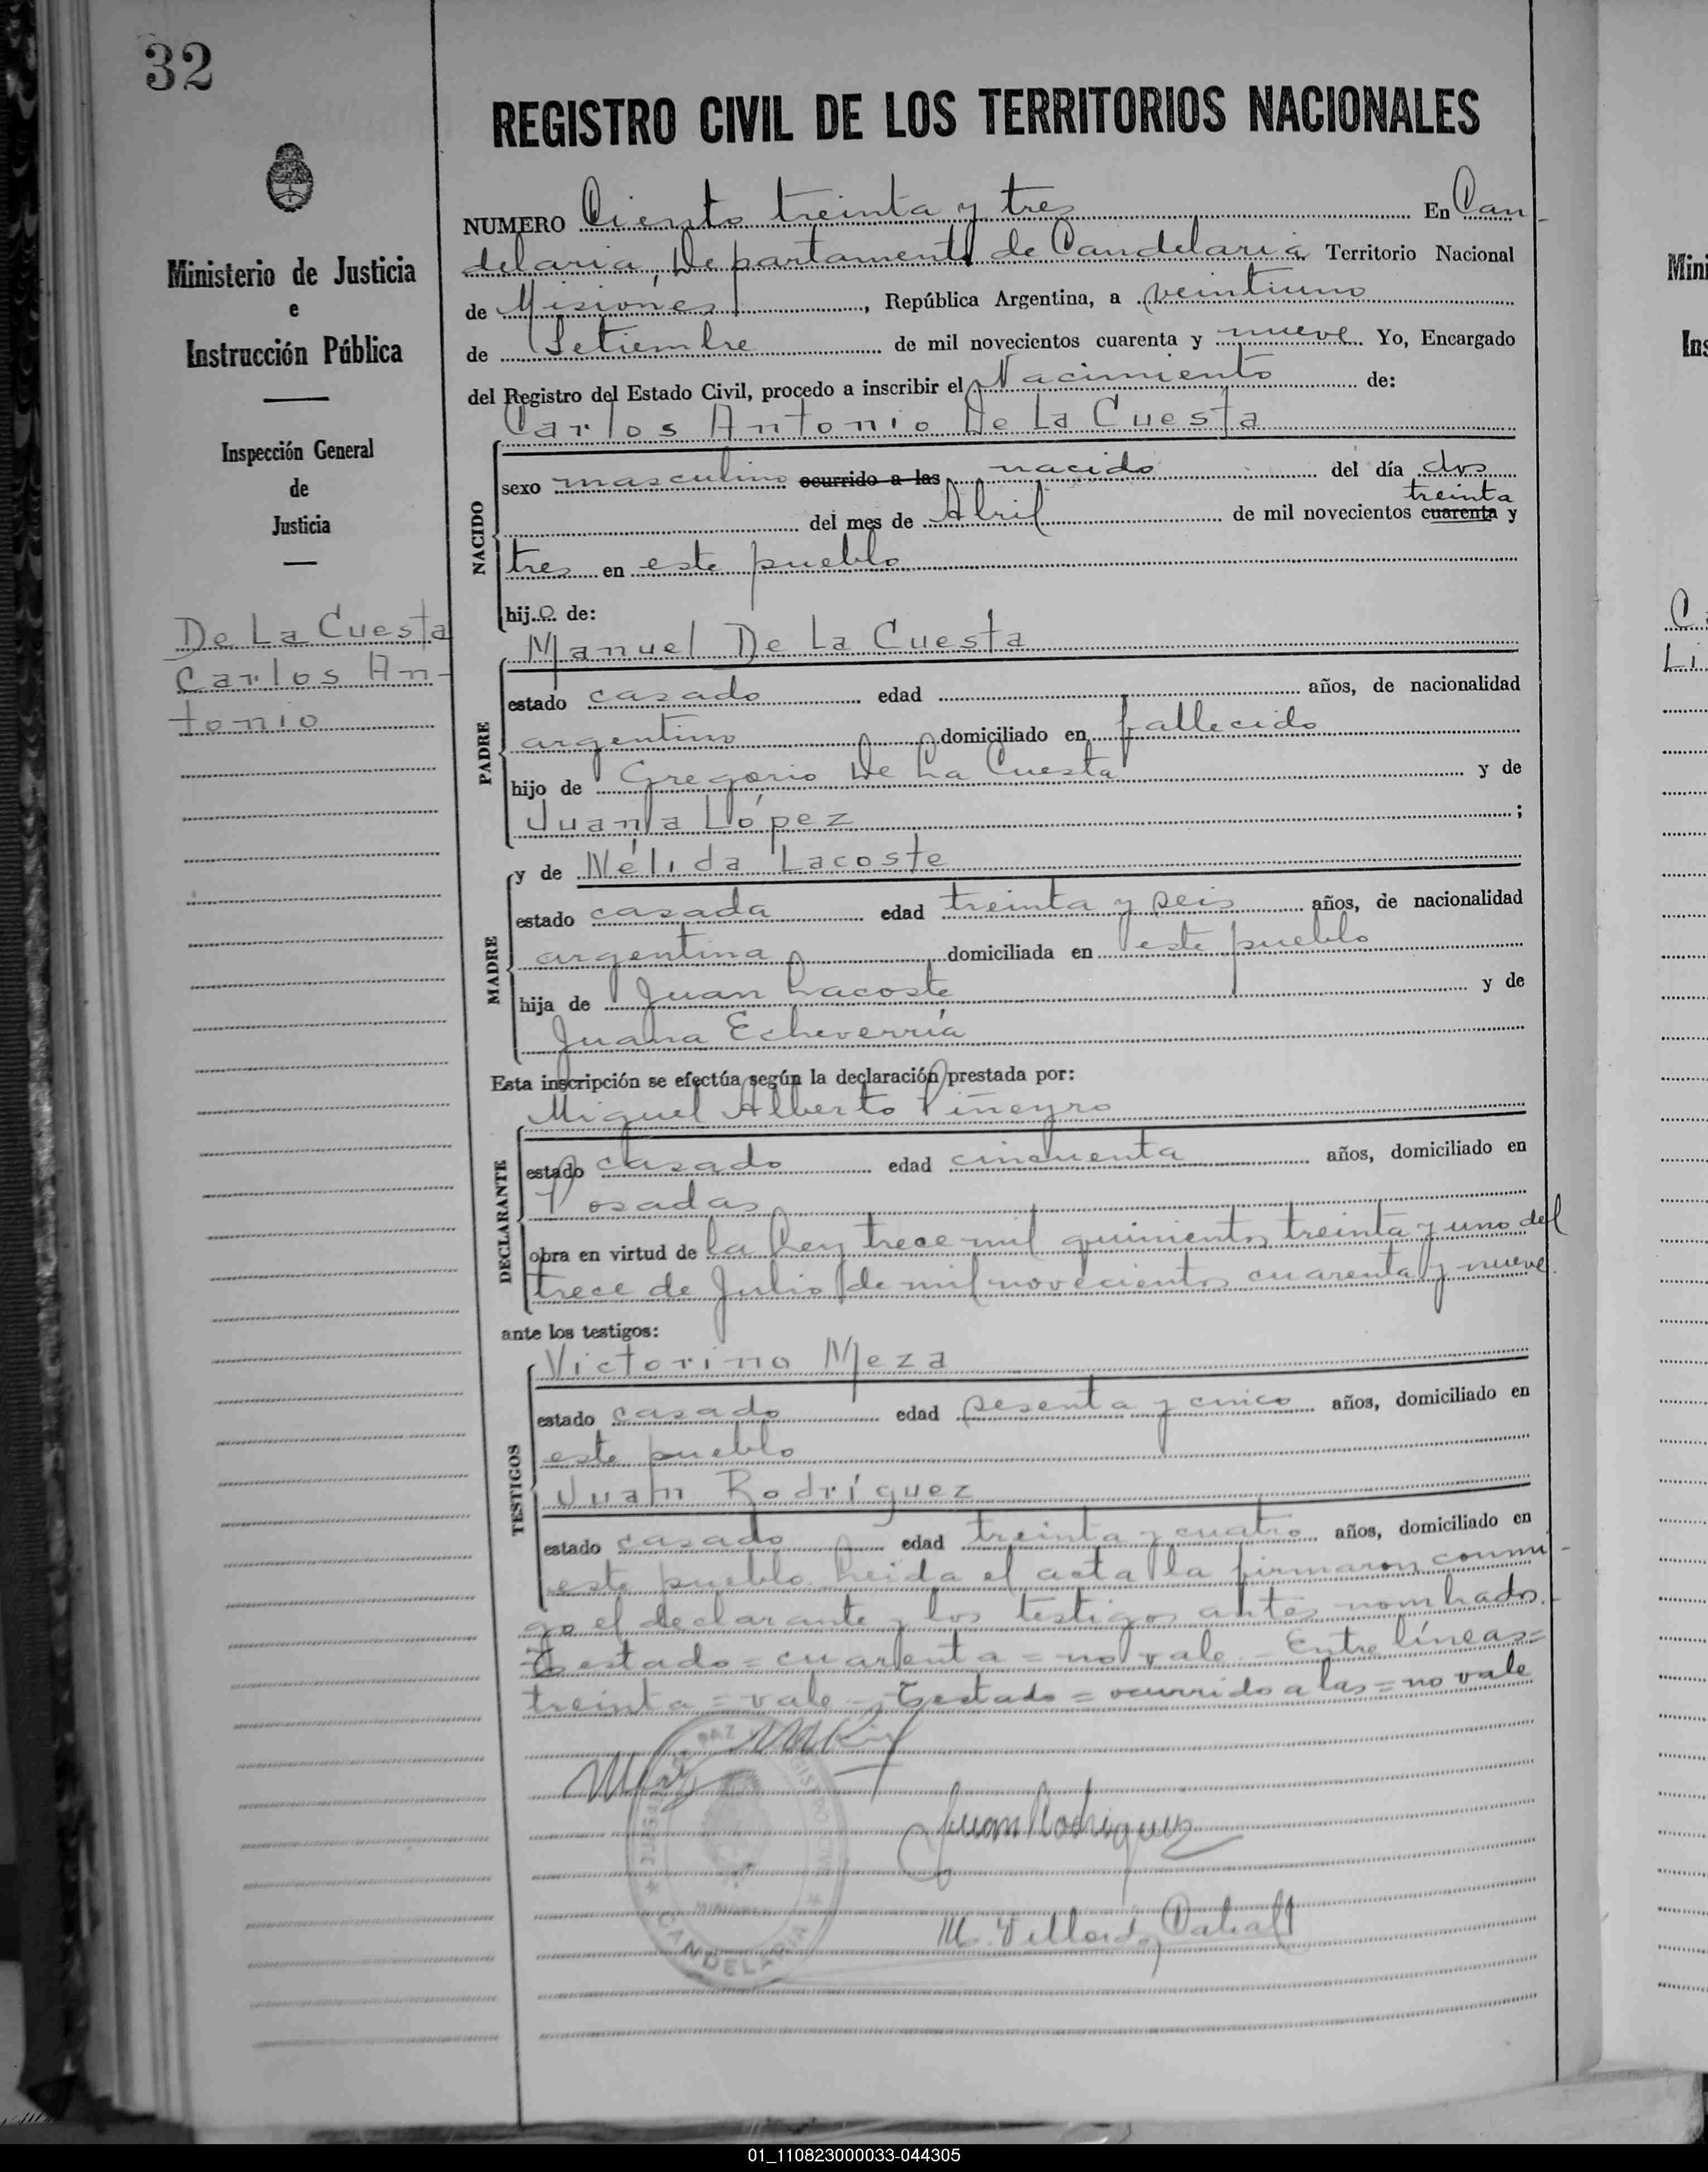 32
REGISTRO CIVIL DE LOS TERRITORIOS NACIONALES
Ministerio de Justicia
e
Instrucción Pública
Inspección General
de
Justicia
De La Cuesta
Carlos An-
tonio
NUMERO Ciento treinta y tres En Can-
delaria, Departamento de Candelaria Territorio Nacional
de Misiones, República Argentina, a veintiuno
de Setiembre de mil novecientos cuarenta y nueve Yo, Encargado
del Registro del Estado Civil, procedo a inscribir el Nacimiento de:
Carlos Antonio De La Cuesta
NACIDO
sexo masculino ocurrido a las nacido del día dos
treinta
del mes de Abril de mil novecientos cuarenta y
tres en este pueblo
hijo de:
Manuel De La Cuesta
PADRE
estado casado edad años, de nacionalidad
argentino domiciliado en fallecido
hijo de Gregorio De La Cuesta y de
Juana López ;
y de Nélida Lacoste
MADRE
estado casada edad treinta y seis años, de nacionalidad
argentina domiciliada en este pueblo
hija de Juan Lacoste y de
Juana Echeverría
Esta inscripción se efectúa según la declaración prestada por:
Miguel Alberto Piñeyro
DECLARANTE
estado casado edad cincuenta años, domiciliado en
Posadas
obra en virtud de la Ley trece mil quinientos treinta y uno del
trece de Julio de mil novecientos cuarenta y nueve.
ante los testigos:
Victorino Meza
TESTIGOS
estado casado edad sesenta y cinco años, domiciliado en
este pueblo
Juan Rodríguez
estado casado edad treinta y cuatro años, domiciliado en
este pueblo. Leida el acta la firmaron conmi-
go el declarante y los testigos antes nombrados.
Testado = cuarenta = no vale - Entre líneas =
treinta = vale - Testado = ocurrido a las = no vale
Juan Rodriguez
CANDELARIA
Mini
Ins
01_110823000033-044305